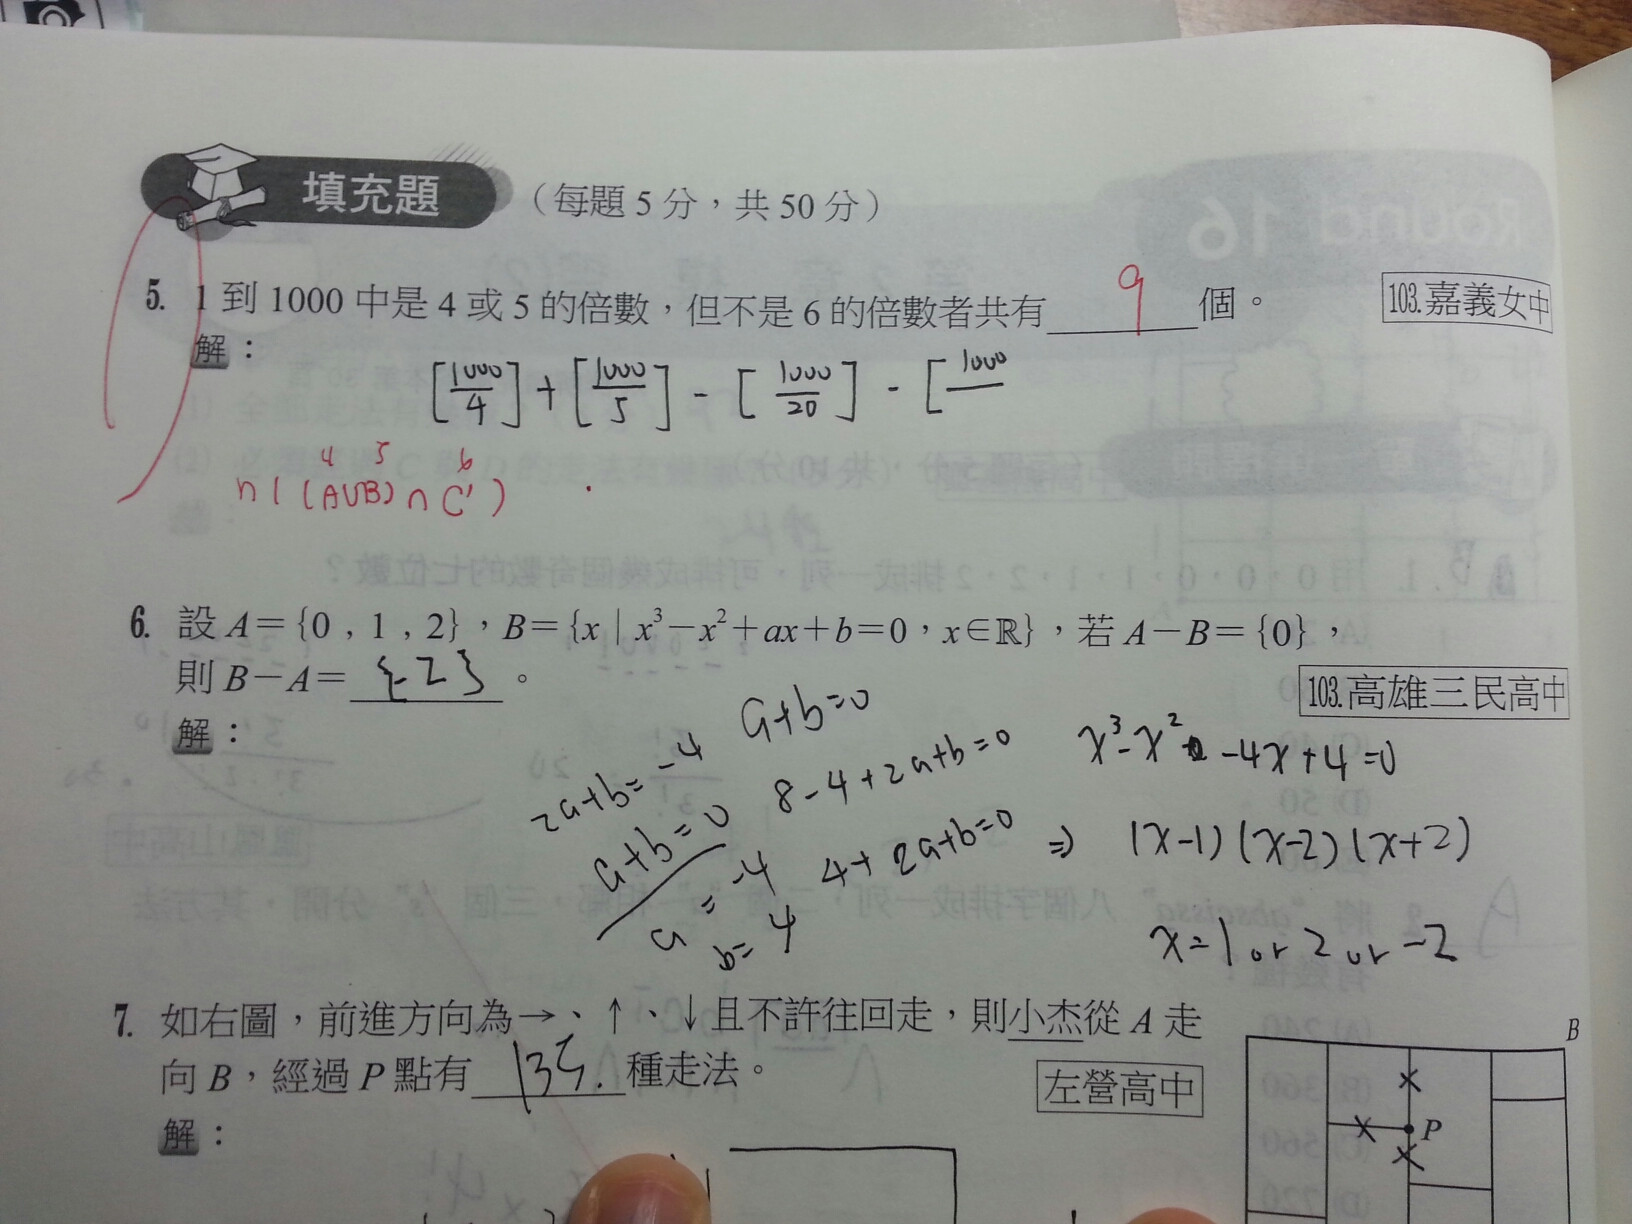 填充題 (每題 5 分,共 50 分)
5. 1 到 1000 中是 4 或 5 的倍數,但不是 6 的倍數者共有 9 個。 103.嘉義女中
解:
[1000/4] + [1000/5] - [1000/20] - [1000
4 5 6
n((A∪B)∩C')
6. 設 A={0,1,2},B={x|x³-x²+ax+b=0,x∈ℝ},若 A-B={0},
則 B-A= {-2} 。 103.高雄三民高中
解:
a+b=0
8-4+2a+b=0
4+2a+b=0
2a+b=-4
a+b=0
a=-4
b=4
x³-x²-4x+4=0
⇒ (x-1)(x-2)(x+2)
x=1 or 2 or -2
7. 如右圖,前進方向為→、↑、↓且不許往回走,則小杰從 A 走
向 B,經過 P 點有 135. 種走法。 左營高中
解:
B
P